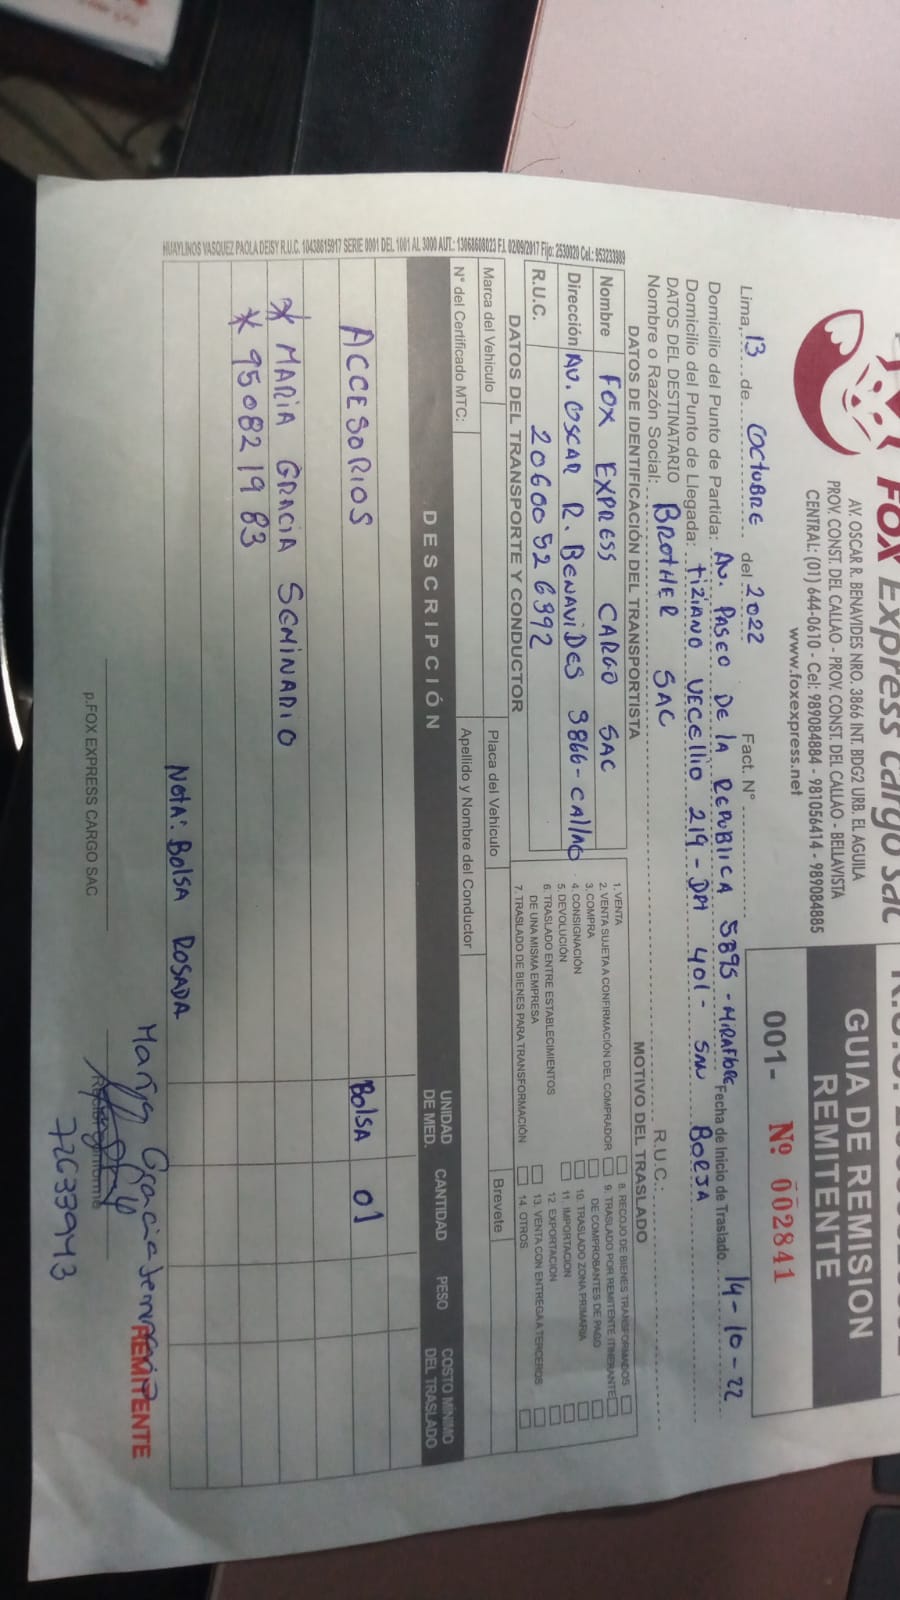 FOX Express Cargo SAC
AV. OSCAR R. BENAVIDES NRO. 3866 INT. BDG2 URB. EL AGUILA
PROV. CONST. DEL CALLAO - PROV. CONST. DEL CALLAO - BELLAVISTA
CENTRAL: (01) 644-0610 - Cel: 989084884 - 981056414 - 989084885
www.foxexpress.net
GUIA DE REMISION
REMITENTE
001- Nº 002841
Lima, 13 de OCTUBRE del 2022 Fact. N°
Domicilio del Punto de Partida: AV. PASEO DE LA REPUBLICA 5895 - MIRAFlORE Fecha de Inicio de Traslado. 14-10-22
Domicilio del Punto de Llegada: tiZiANO VECEllio 219 - DPt 401 - SAN BORJA
DATOS DEL DESTINATARIO
Nombre o Razón Social: BROTHER SAC R.U.C.:
DATOS DE IDENTIFICACIÓN DEL TRANSPORTISTA
Nombre FOX EXPRESS CARGO SAC
Dirección AV. OSCAR R. BENAViDES 3866 - CAllAO
R.U.C. 20600526992
DATOS DEL TRANSPORTE Y CONDUCTOR
MOTIVO DEL TRASLADO
1. VENTA
2. VENTA SUJETA A CONFIRMACIÓN DEL COMPRADOR
3. COMPRA
4. CONSIGNACIÓN
5. DEVOLUCIÓN
6. TRASLADO ENTRE ESTABLECIMIENTOS
DE UNA MISMA EMPRESA
7. TRASLADO DE BIENES PARA TRANSFORMACIÓN
8. RECOJO DE BIENES TRANSFORMADOS
9. TRASLADO POR REMITENTE ITINERANTE
DE COMPROBANTES DE PAGO
10. TRASLADO ZONA PRIMARIA
11. IMPORTACION
12. EXPORTACION
13. VENTA CON ENTREGA A TERCEROS
14. OTROS
Marca del Vehículo Placa del Vehículo Brevete
N° del Certificado MTC: Apellido y Nombre del Conductor
DESCRIPCIÓN UNIDAD DE MED. CANTIDAD PESO COSTO MÍNIMO DEL TRASLADO
ACCESORIOS Bolsa 01
* MARiA GRACiA SEMINARIO
* 950821983
Nota: Bolsa ROSADA
HUAYLINOS VASQUEZ PAOLA DEISY R.U.C. 10438615917 SERIE 0001 DEL 1001 AL 3000 AUT.: 13068608023 F.I. 02/09/2017 Fijo: 2530020 Cel.: 953233989
María Gracia Seminario
REMITENTE
p.FOX EXPRESS CARGO SAC
72633943